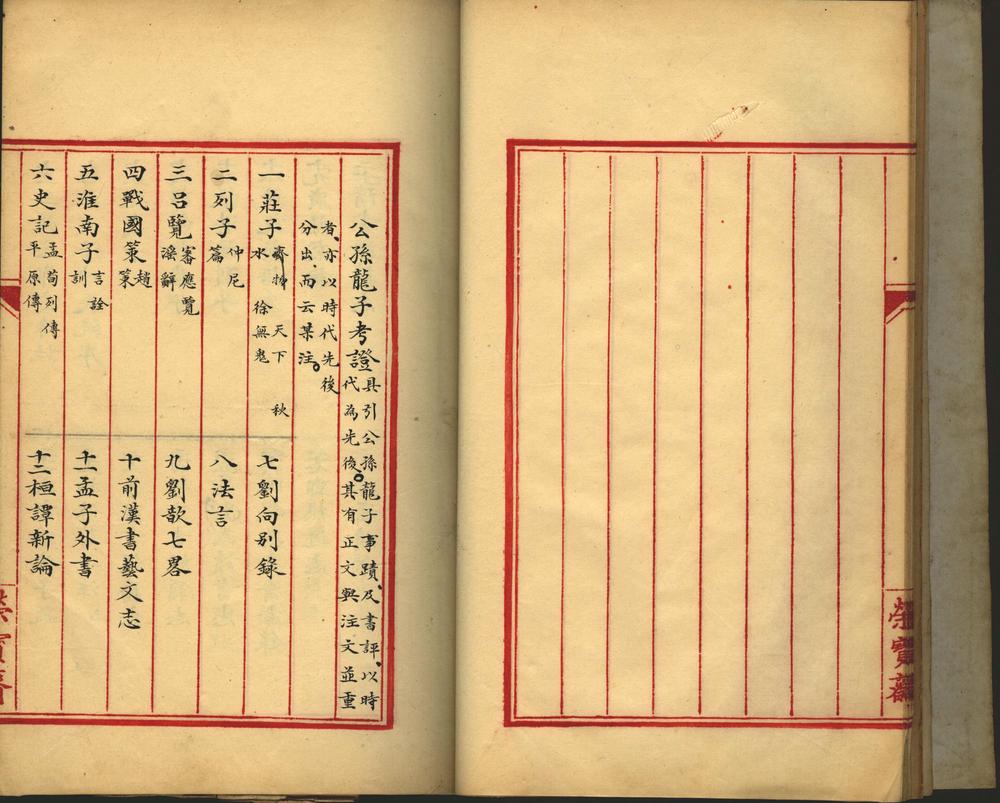 榮寶齋
公孫龍子考證
具引公孫龍子事蹟、及書評、以時
代為先後。其有正文與注文並重
者、亦以時代先後
分出、而云某注。
一莊子 齊物 天下 秋
水 徐無鬼
二列子 仲尼
篇
三呂覽 審應覽
淫辭
四戰國策 趙
策
五淮南子 言詮
訓
六史記 孟荀列傳
平原傳
七劉向別錄
八法言
九劉歆七畧
十前漢書藝文志
十一孟子外書
十二桓譚新論
榮寶齋